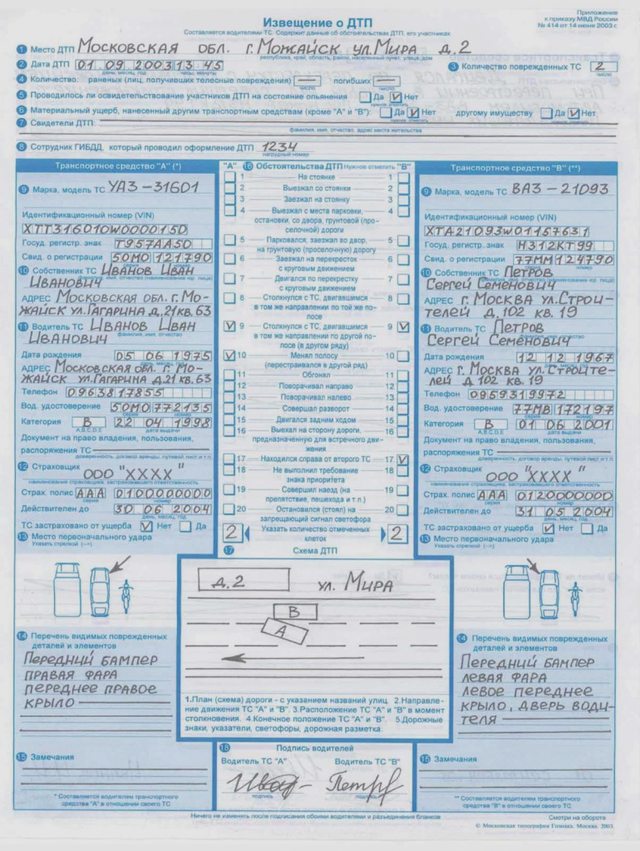 Приложение
к приказу МВД России
№ 414 от 14 июня 2003 г.
Извещение о ДТП
Составляется водителями ТС. Содержит данные об обстоятельствах ДТП, его участниках
1 Место ДТП МОСКОВСКАЯ ОБЛ. Г. МОЖАЙСК УЛ. МИРА Д. 2
республика, край, область, район, населенный пункт, улица, дом
2 Дата ДТП 01 09 2003 13 45
день, месяц, год часы, минуты
3 Количество поврежденных ТС 2
число
4 Количество: раненых (лиц, получивших телесные повреждения) — погибших —
5 Проводилось ли освидетельствование участников ДТП на состояние опьянения Да V Нет
6 Материальный ущерб, нанесенный другим транспортным средствам (кроме "А" и "В") Да V Нет другому имуществу Да V Нет
7 Свидетели ДТП:
фамилия, имя, отчество, адрес места жительства
8 Сотрудник ГИБДД, который проводил оформление ДТП 1234
нагрудный номер
Транспортное средство "А" (*)
9 Марка, модель ТС УАЗ-31601
Идентификационный номер (VIN)
XTT316010W0000150
Госуд. регистр. знак Т957АА50
Свид. о регистрации 50МО 121790
серия номер
10 Собственник ТС ИВАНОВ ИВАН
ИВАНОВИЧ
АДРЕС МОСКОВСКАЯ ОБЛ. Г. МО-
ЖАЙСК УЛ. ГАГАРИНА Д. 21 КВ. 63
11 Водитель ТС ИВАНОВ ИВАН
фамилия, имя, отчество
ИВАНОВИЧ
Дата рождения 05 06 1975
день, месяц, год
АДРЕС МОСКОВСКАЯ ОБЛ. Г. МО-
ЖАЙСК УЛ. ГАГАРИНА Д. 21 КВ. 63
Телефон 0963817855
Вод. удостоверение 50МО 772135
серия номер
Категория В 22 04 1998
A,B,C,D,E дата выдачи
Документ на право владения, пользования,
распоряжения ТС
доверенность, договор аренды, путевой лист и т.п.
12 Страховщик ООО "ХХХХ"
наименование страховщика, застраховавшего ответственность
Страх. полис ААА 0100000000
серия номер
Действителен до 30 06 2004
день, месяц, год
ТС застраховано от ущерба V Нет Да
13 Место первоначального удара
Указать стрелкой (—>)
14 Перечень видимых поврежденных
деталей и элементов
ПЕРЕДНИЙ БАМПЕР
ПРАВАЯ ФАРА
ПЕРЕДНЕЕ ПРАВОЕ
КРЫЛО
15 Замечания
* Составляется водителем транспортного
средства "А" в отношении своего ТС
"А" 16 Обстоятельства ДТП Нужное отметить "В"
1 На стоянке 1
2 Выезжал со стоянки 2
3 Заезжал на стоянку 3
4 Выезжал с места парковки, 4
остановки, со двора, грунтовой (про-
селочной) дороги
5 Парковался, заезжал во двор, 5
на грунтовую (проселочную) дорогу
6 Заезжал на перекресток 6
с круговым движением
7 Двигался по перекрестку 7
с круговым движением
8 Столкнулся с ТС, двигавшимся 8
в том же направлении по той же по-
лосе
V 9 Столкнулся с ТС, двигавшимся 9 V
в том же направлении по другой по-
лосе (в другом ряду)
V 10 Менял полосу 10
(перестраивался в другой ряд)
11 Обгонял 11
12 Поворачивал направо 12
13 Поворачивал налево 13
14 Совершал разворот 14
15 Двигался задним ходом 15
16 Выехал на сторону дороги, 16
предназначенную для встречного дви-
жения
17 Находился справа от второго ТС 17 V
18 Не выполнил требование 18
знака приоритета
19 Совершил наезд (на 19
препятствие, пешехода и т.п.)
20 Остановился (стоял) на 20
запрещающий сигнал светофора
2 Указать количество отмеченных 2
клеток
17 Схема ДТП
Д. 2 УЛ. МИРА
В
А
1.План (схема) дороги - с указанием названий улиц. 2.Направле-
ние движения ТС "А" и "В". 3.Расположение ТС "А" и "В" в момент
столкновения. 4.Конечное положение ТС "А" и "В". 5.Дорожные
знаки, указатели, светофоры, дорожная разметка.
18 Подпись водителей
Водитель ТС "А" Водитель ТС "В"
подпись подпись
Транспортное средство "В" (**)
9 Марка, модель ТС ВАЗ-21093
Идентификационный номер (VIN)
XTA21093W01157631
Госуд. регистр. знак Н312КТ99
Свид. о регистрации 77ММ 124790
серия номер
10 Собственник ТС ПЕТРОВ
СЕРГЕЙ СЕМЕНОВИЧ
АДРЕС Г. МОСКВА УЛ. СТРОИ-
ТЕЛЕЙ Д. 102 КВ. 19
11 Водитель ТС ПЕТРОВ
СЕРГЕЙ СЕМЕНОВИЧ
Дата рождения 12 12 1967
день, месяц, год
АДРЕС Г. МОСКВА УЛ. СТРОИТЕ-
ЛЕЙ Д. 102 КВ. 19
Телефон 0959319972
Вод. удостоверение 77МВ 172197
серия номер
Категория В 01 06 2001
A,B,C,D,E дата выдачи
Документ на право владения, пользования,
распоряжения ТС
доверенность, договор аренды, путевой лист и т.п.
12 Страховщик ООО "ХХХХ"
наименование страховщика, застраховавшего ответственность
Страх. полис ААА 0120000000
серия номер
Действителен до 31 05 2004
день, месяц, год
ТС застраховано от ущерба V Нет Да
13 Место первоначального удара
Указать стрелкой (—>)
14 Перечень видимых поврежденных
деталей и элементов
ПЕРЕДНИЙ БАМПЕР
ЛЕВАЯ ФАРА
ЛЕВОЕ ПЕРЕДНЕЕ
КРЫЛО, ДВЕРЬ ВОДИ-
ТЕЛЯ
15 Замечания
** Составляется водителем транспортного
средства "В" в отношении своего ТС
Ничего не изменять после подписания обоими водителями и разъединения бланков
Смотри на обороте
© Московская типография Гознака. Москва. 2003.